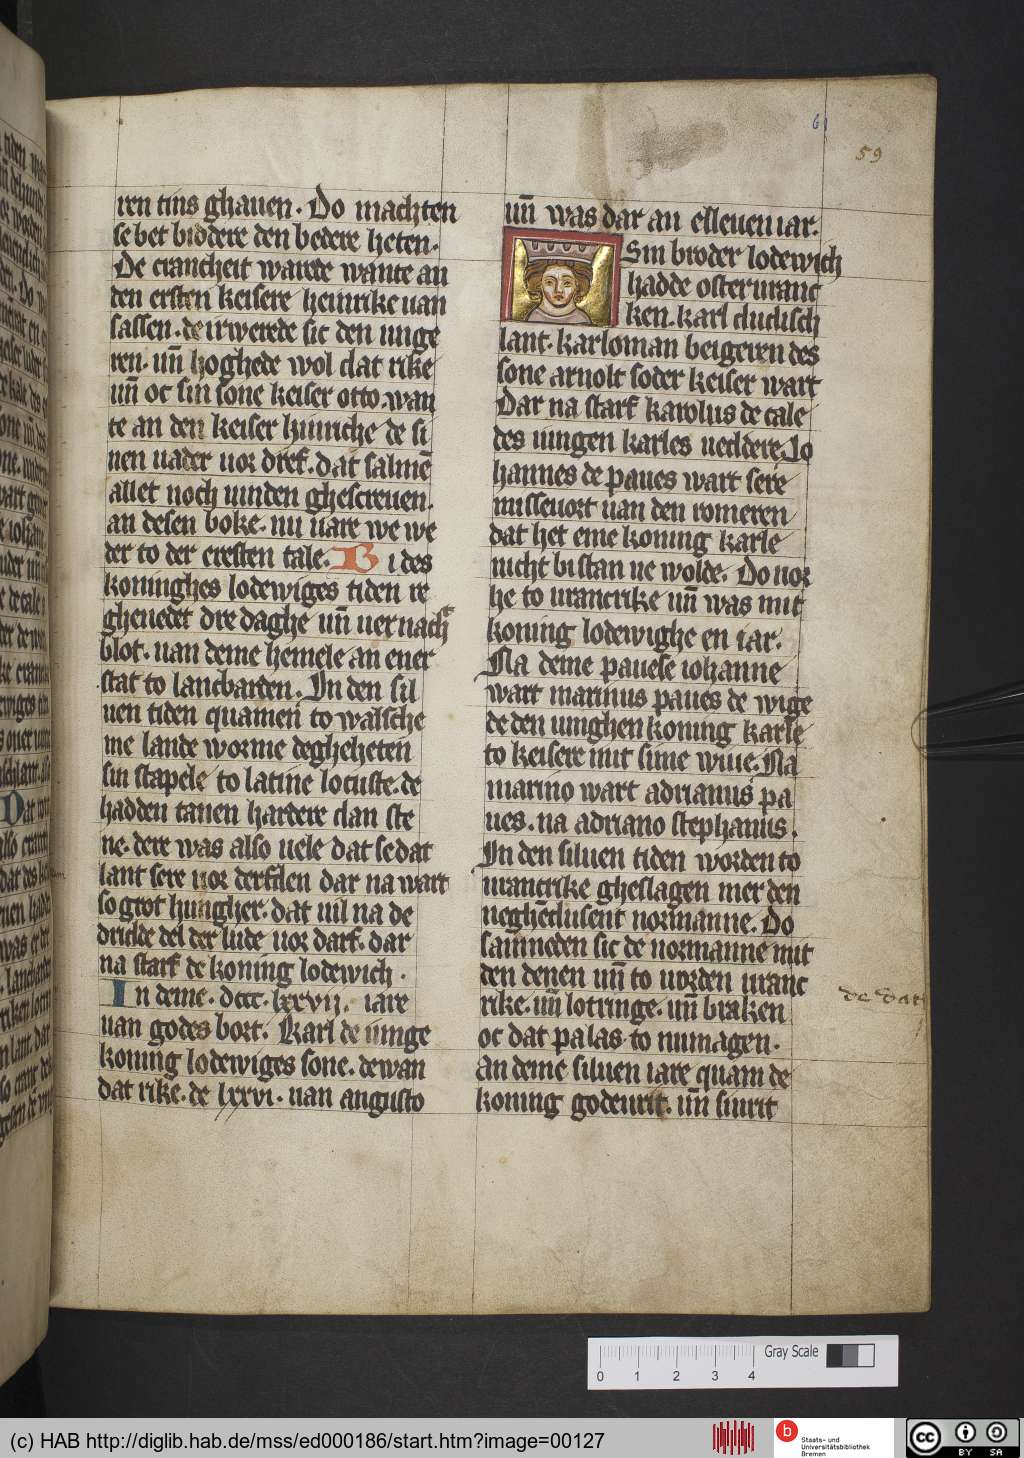 61
59
ren tins ghauen. Do machten
se bet biddere den bedere heten.
De crancheit warede wante an
den ersten keisere heinrike uan
sassen. de irwerede sic den unge
ren. un̄ hoghede wol dat rike
un̄ oc sin sone keiser otto. wan
te an den keiser hinriche de si
nen uader uor dref. dat salmē
allet noch uinden ghescreuen.
an desen boke. nu uare we we
der to der eresten tale. Bi des
koninghes lodewiges tiden re
gheuedet dre daghe un̄ uer nachte
blot. uan deme hemele an ener
stat to lancbarden. In den sil
uen tiden quamen to walsche
me lande worme degheheten
sin stapele to latine locuste. de
hadden tanen hardere dan ste
ne. dere was also uele dat se dat
lant sere uor derfden dar na wart
so grot hungher. dat uil na de
dridde del der lude uor darf. dar
na starf de koning lodewich.
In deme. dccc. lxxvii. iare
uan godes bort. Karl de iunge
koning lodewiges sone. dewan
dat rike. de lxxvi. uan angusto
un̄ was dar an elleuen iar.
Sin broder lodewich
hadde osteruranc
ken. karl dudisch
lant. karloman beigeren des
sone arnolt soder keiser wart
Dar na starf karolus de cale
des iungen karles ueddere. Jo
hannes de paues wart sere
misseuort uan den romeren
dat het eme koning karle
nicht bi stan ne wolde. Do uor
he to urancrike un̄ was mit
koning lodewighe en iar.
Na deme pauese iohanne
wart marinus paues de wige
de den iunghen koning karle
to keisere mit sime wiue. Na
marino wart adrianus pa
ues. na adriano stephanus.
In den siluen tiden worden to
urancrike gheslagen mer den
neghēdusent normanne. Do
sammeden sic de normanne mit
den denen un̄ to uorden uranc
rike. un̄ lotringe. un̄ braken
oc dat palas to numagen.
An deme siluen iare quam de
koning godeurit. un̄ siurit
de dat
0 1 2 3 4 Gray Scale
(c) HAB http://diglib.hab.de/mss/ed000186/start.htm?image=00127
b
Staats- und
Universitätsbibliothek
Bremen
cc
BY SA